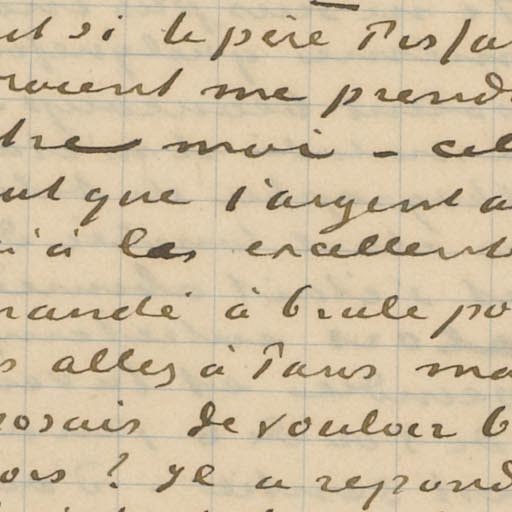 et si le père Pas
raient me prend
tre moi - cel
ut que l'argent a
i à les excellent
mandé à brule po
s allez à Paris ma
posais de vouloir b
ors ? Il a repond